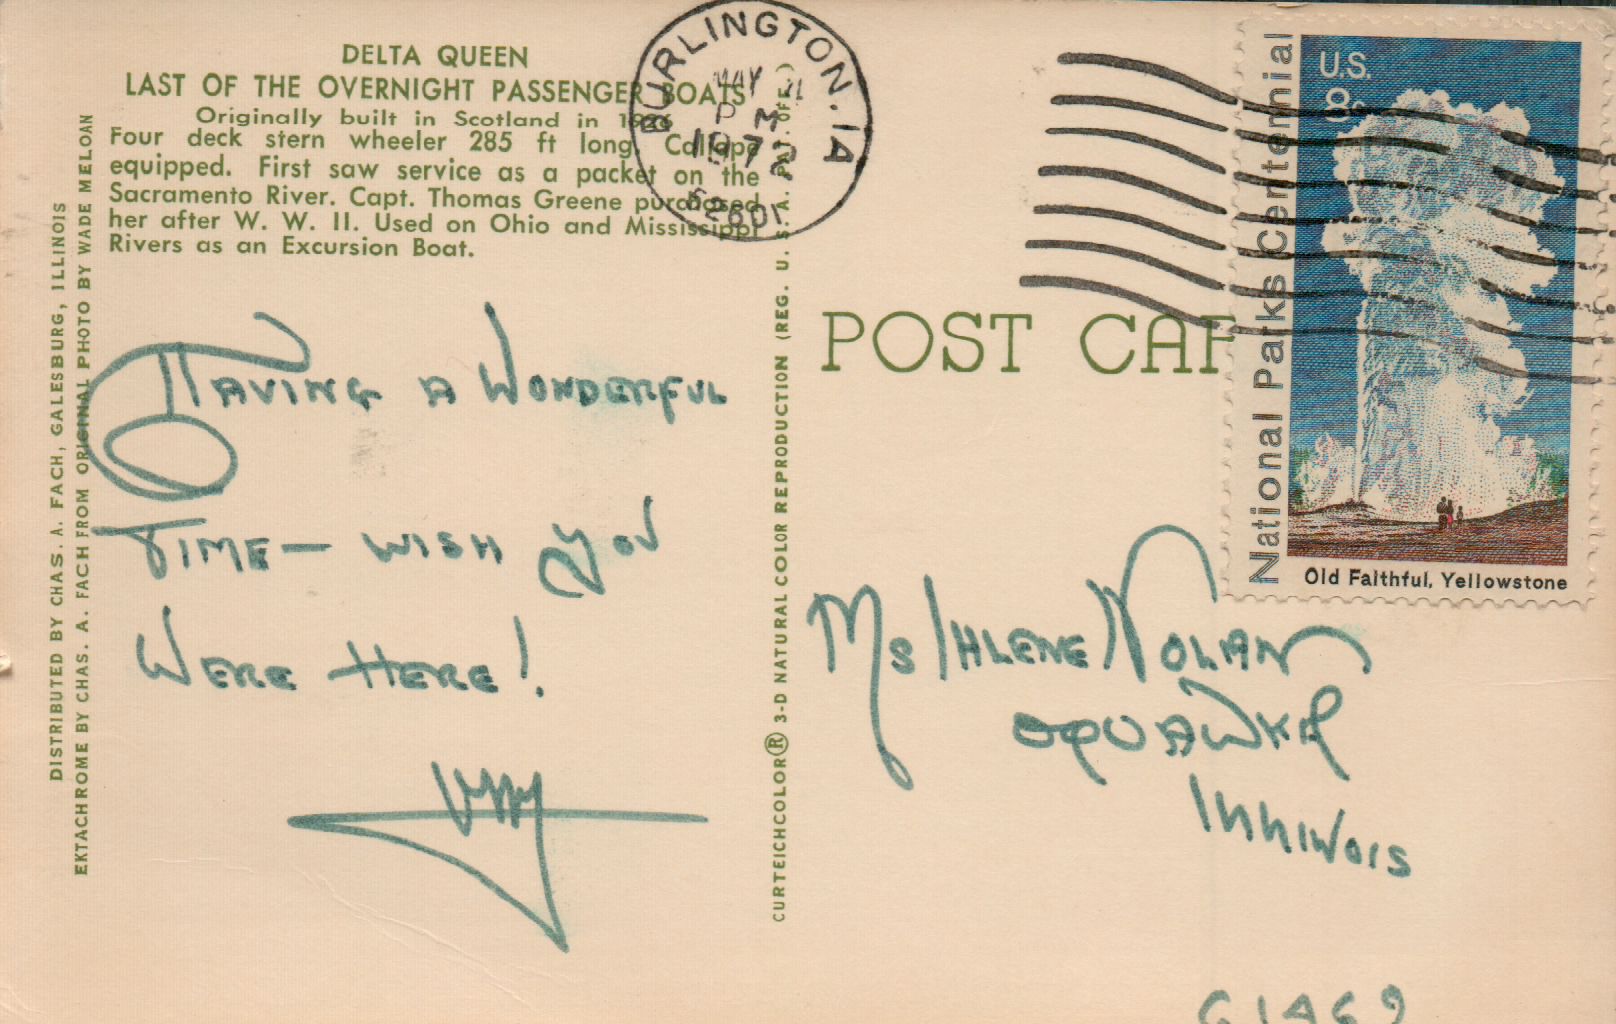 DELTA QUEEN
LAST OF THE OVERNIGHT PASSENGER BOATS
Originally built in Scotland in 1926
Four deck stern wheeler 285 ft long. Calliope
equipped. First saw service as a packet on the
Sacramento River. Capt. Thomas Greene purchased
her after W. W. II. Used on Ohio and Mississippi
Rivers as an Excursion Boat.
DISTRIBUTED BY CHAS. A. FACH, GALESBURG, ILLINOIS
EKTACHROME BY CHAS. A. FACH FROM ORIGINAL PHOTO BY WADE MELOAN
HAVING A WONDERFUL
TIME — WISH YOU
WERE HERE!
CURTEICHCOLOR® 3-D NATURAL COLOR REPRODUCTION (REG. U. S. A. PAT. OFF.)
BURLINGTON, IA
MAY
PM
1972
52601
POST CAR
U.S.
8c
National Parks Centennial
Old Faithful, Yellowstone
MS IHLENE NOLAN
OQUAWKA
ILLINOIS
61469